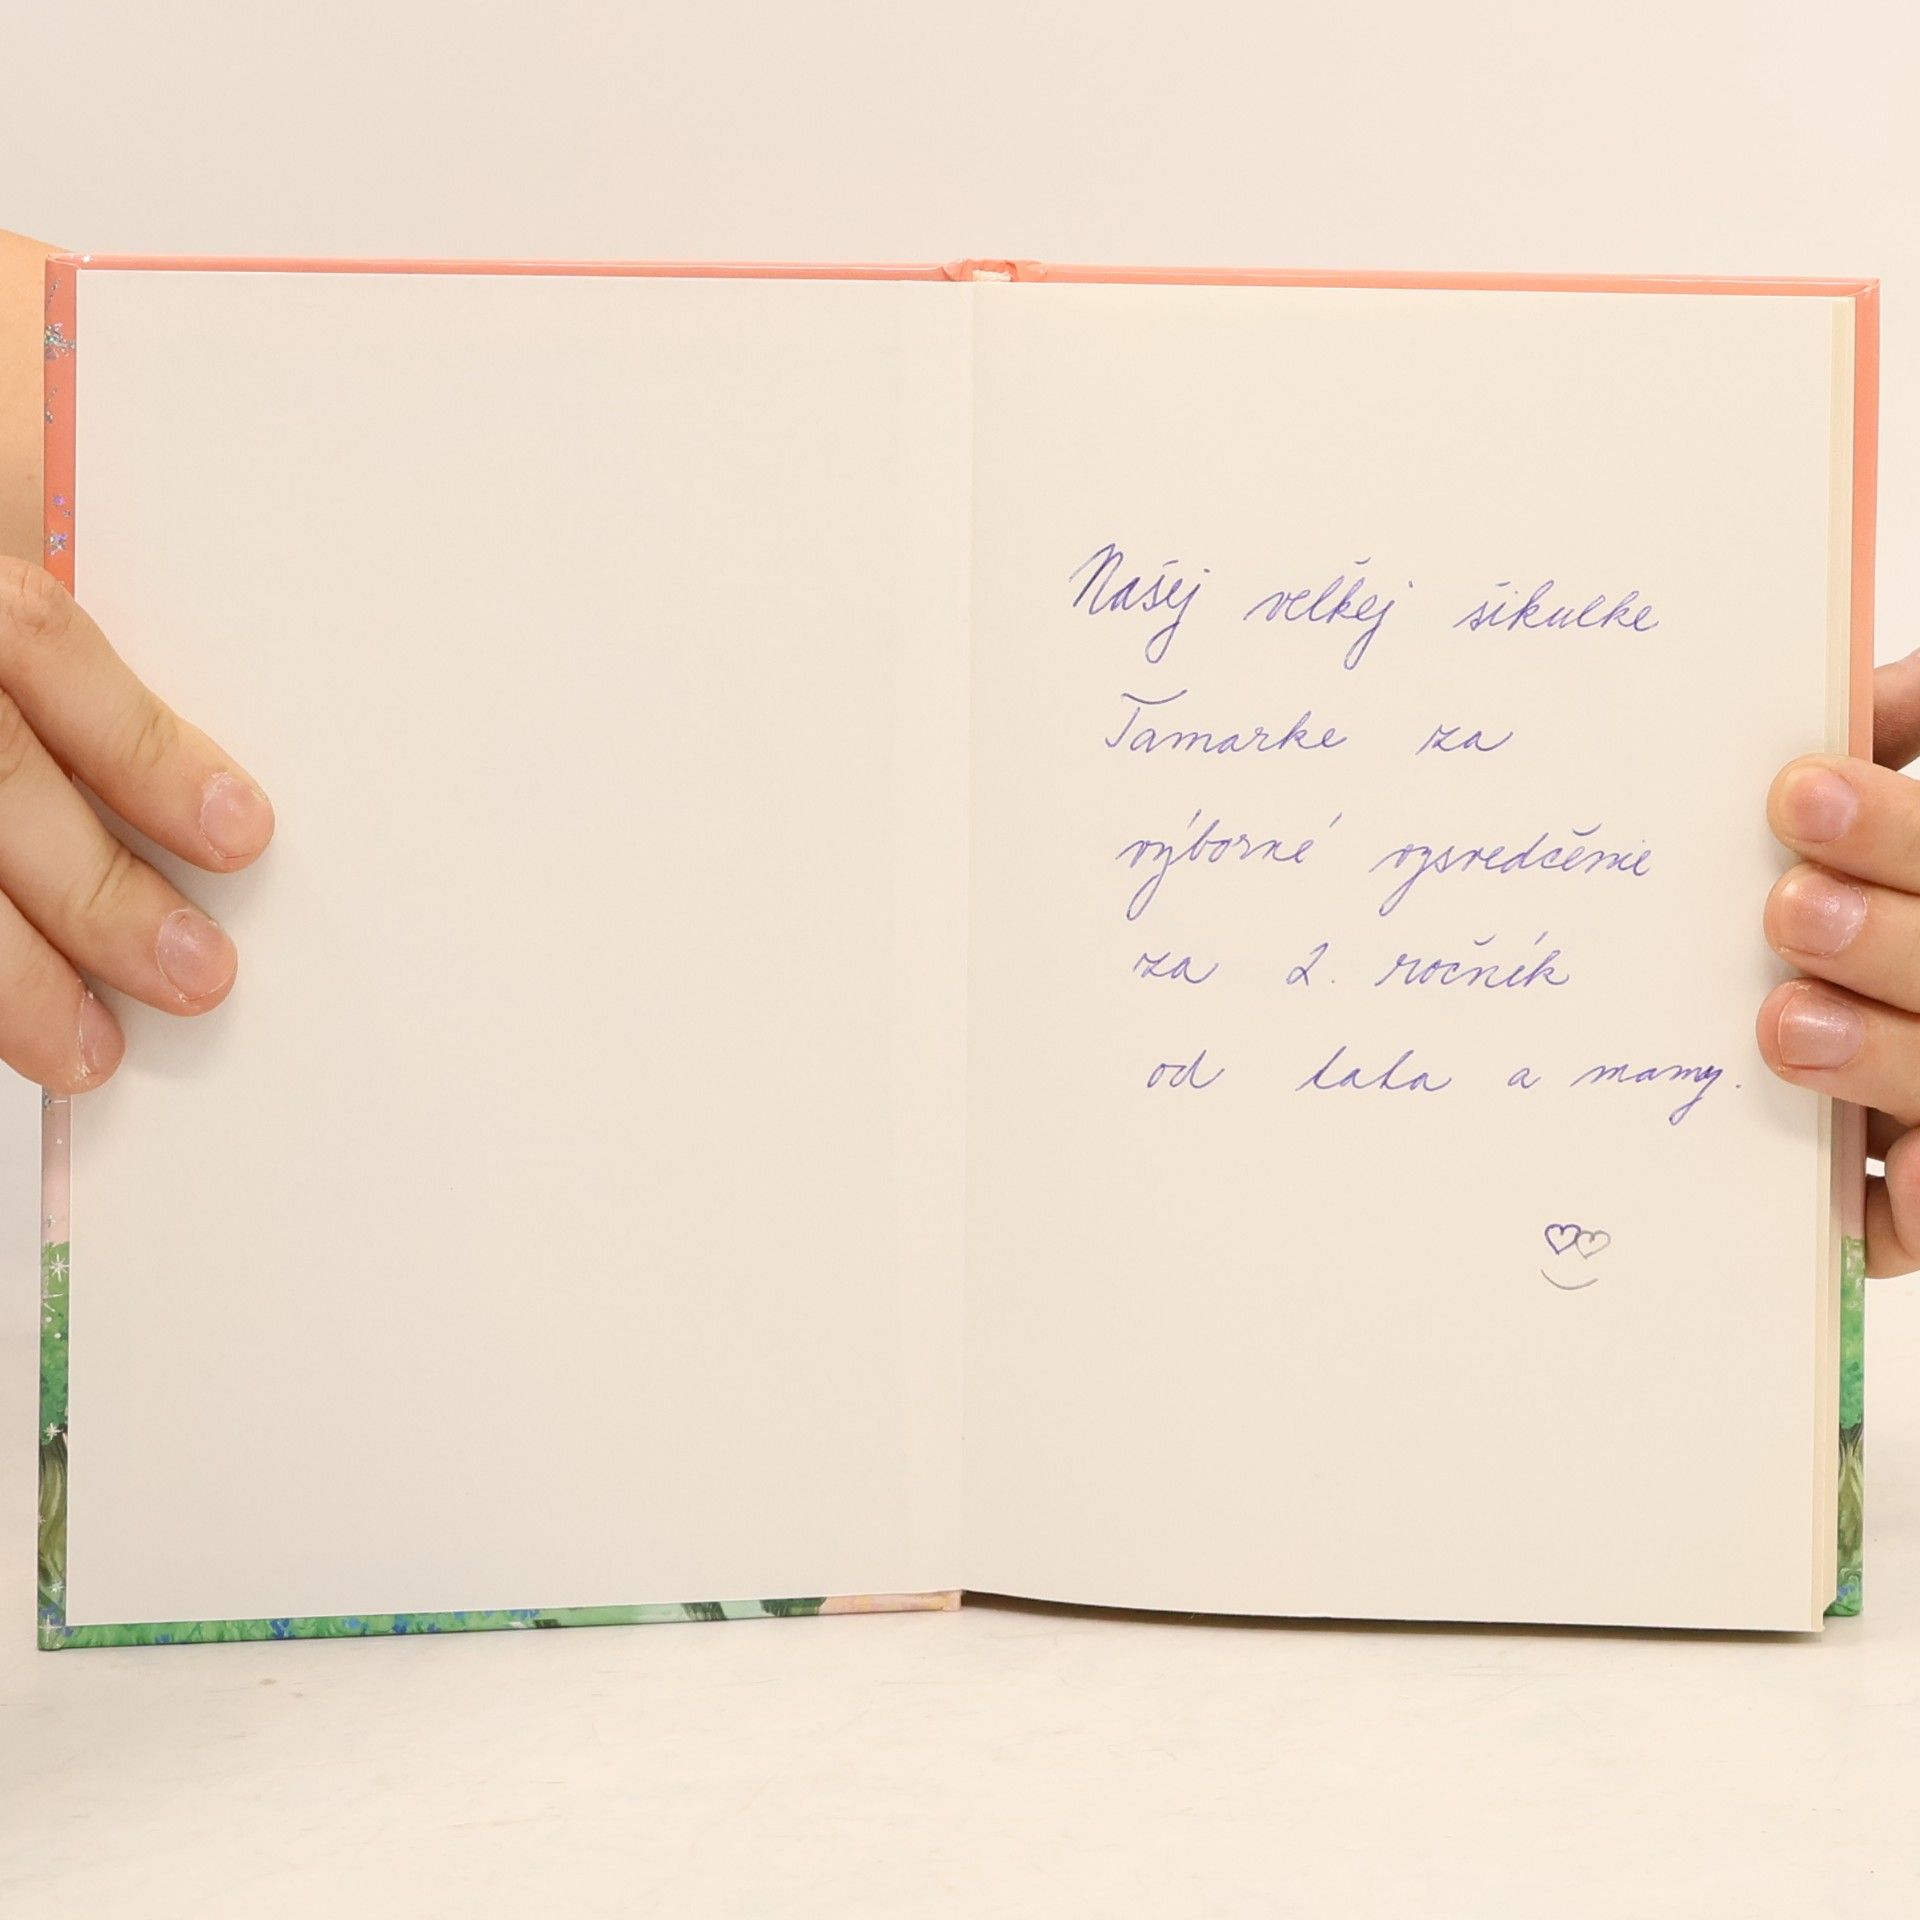 Našej veľkej šikulke
Tamarke za
výborné vysvedčenie
za 2. ročník
od tata a mamy.